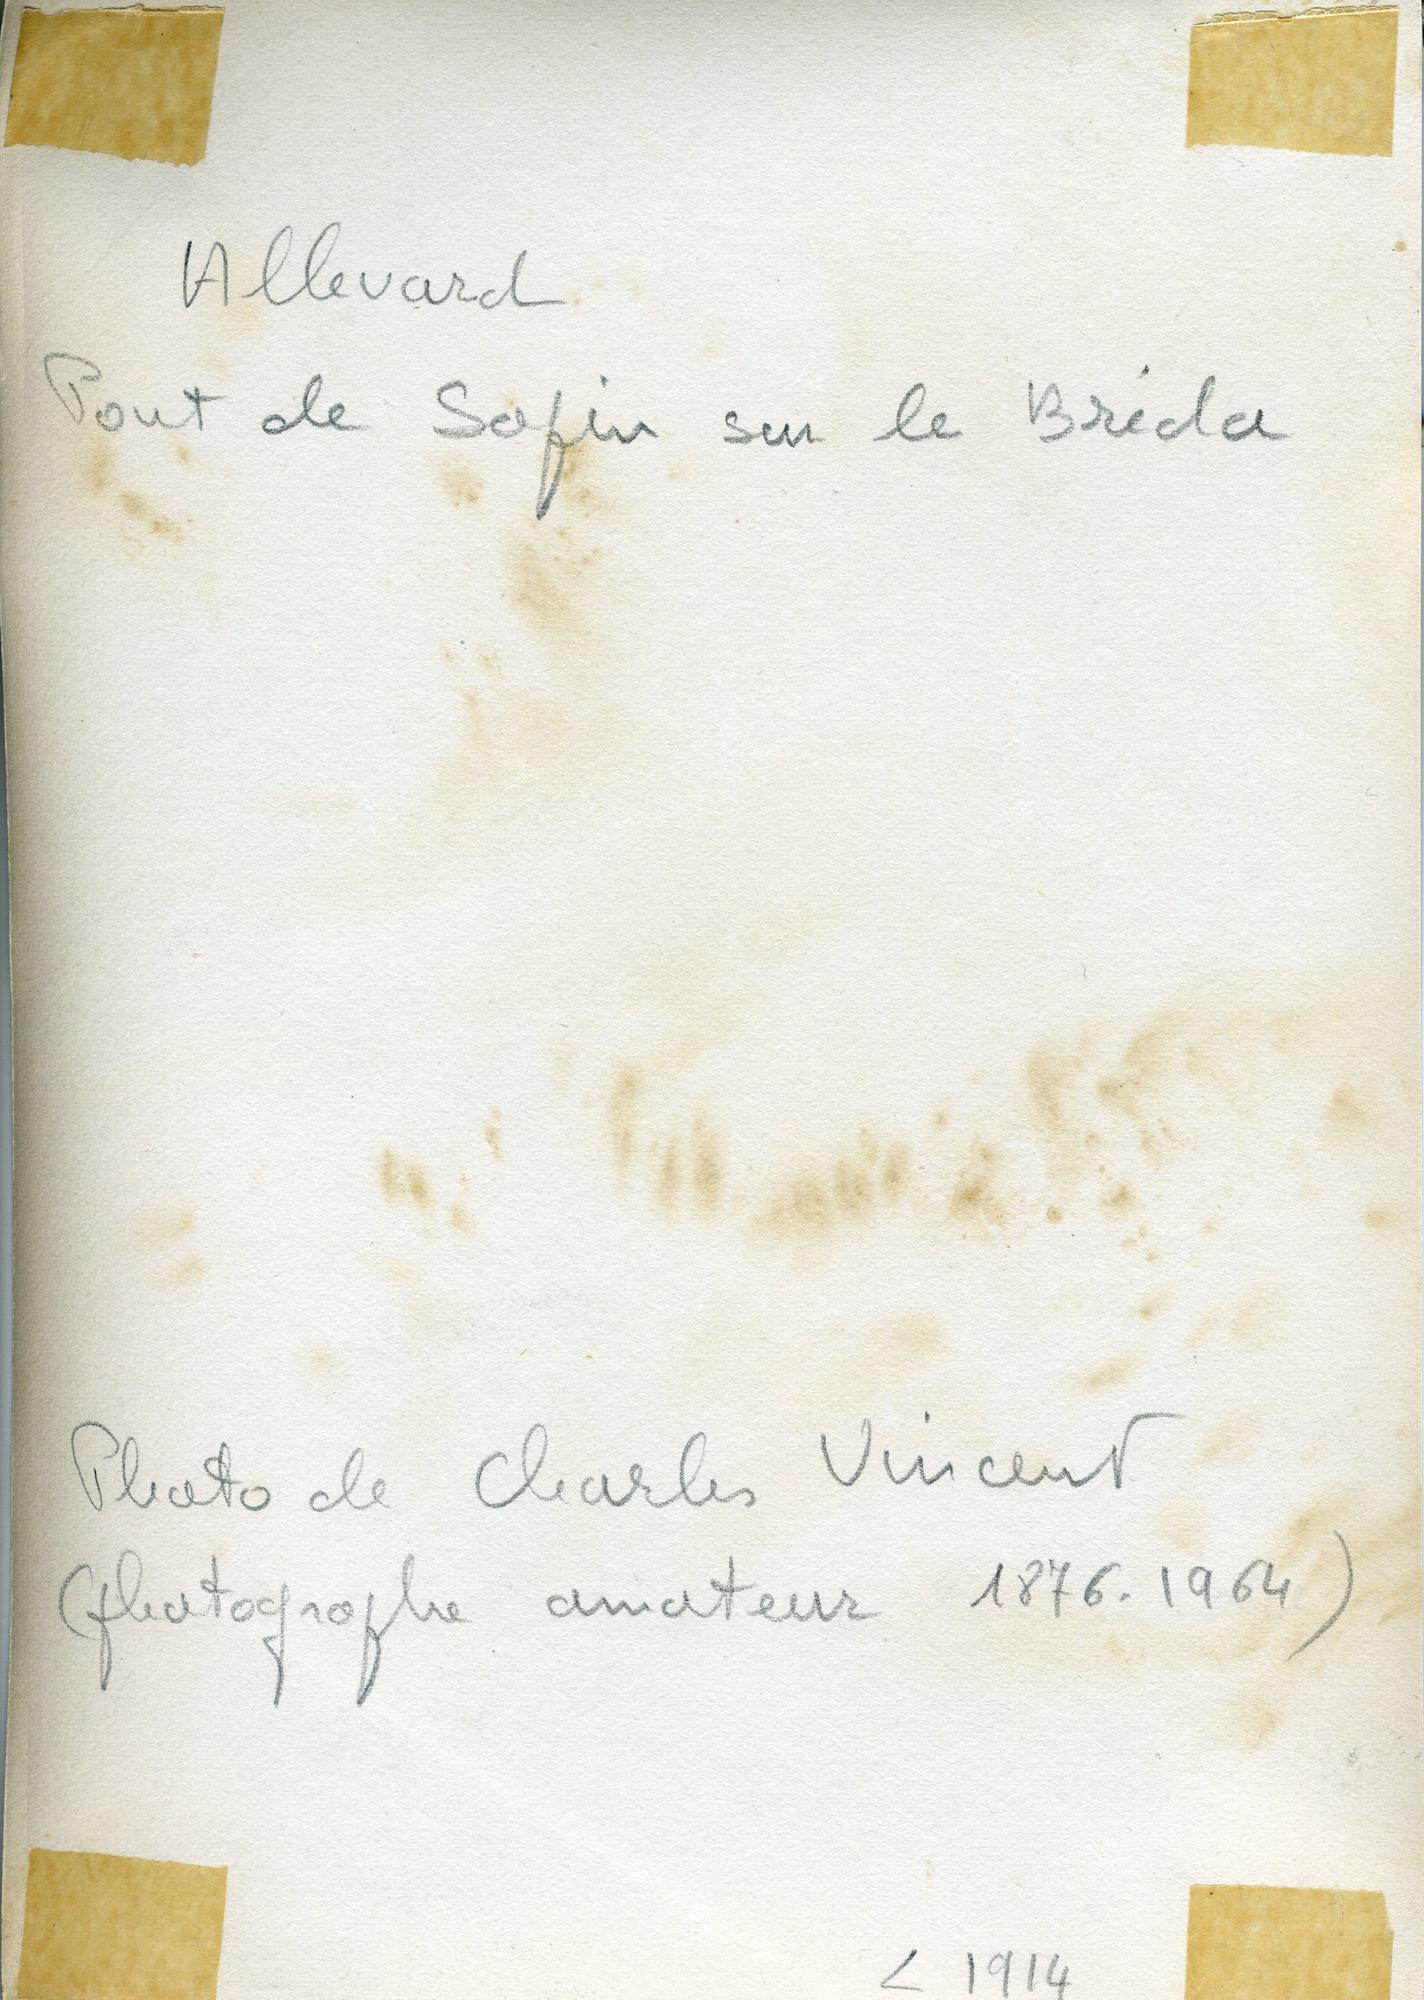 Allevard
Pont de Safin sur le Bréda
Photo de Charles Vincent
(photographe amateur 1876.1964)
< 1914